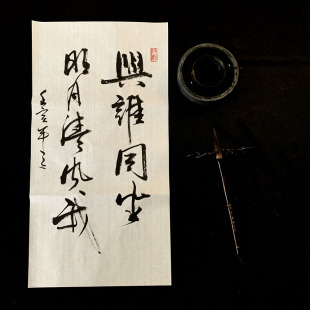 與誰同坐
明月清風我
壬寅年